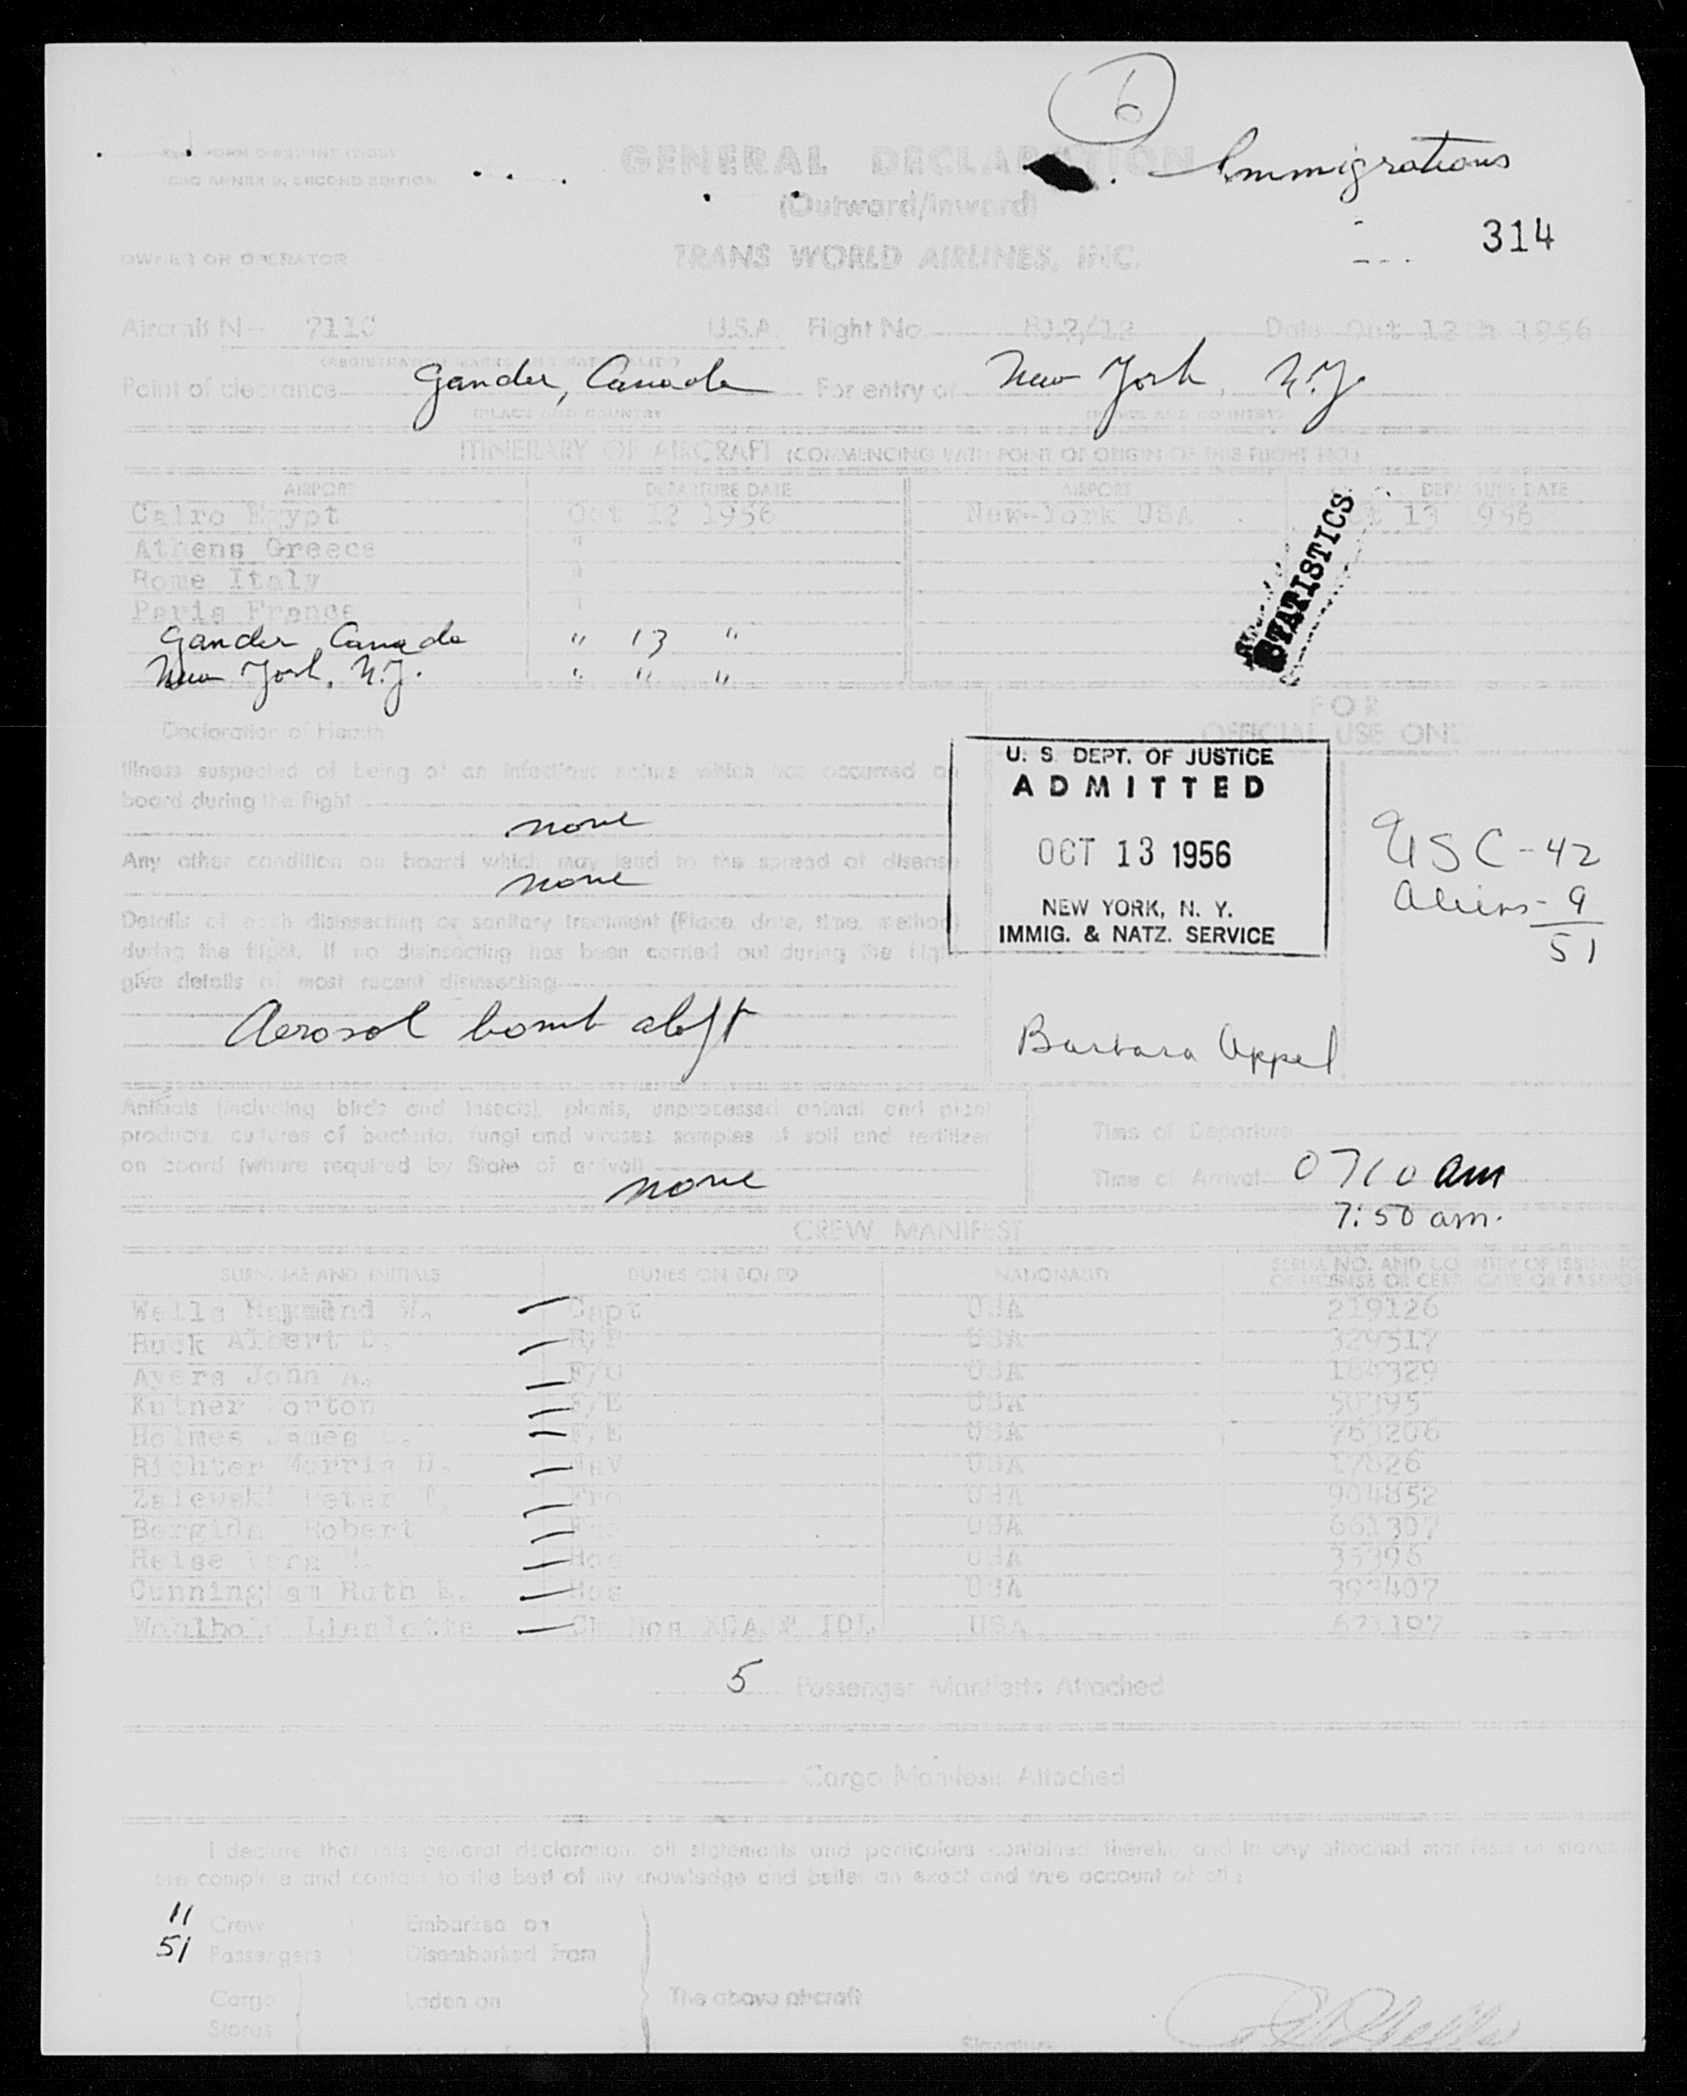 6
Immigrations
GENERAL DECLARATION
(Outward/Inward)
314
OWNER OR OPERATOR
TRANS WORLD AIRLINES, INC.
Aircraft N 7110 U.S.A. Flight No. Date Oct 12th 1956
Point of clearance Gander, Canada For entry at New York, N.Y.
(PLACE AND COUNTRY) (PLACE AND COUNTRY)
ITINERARY OF AIRCRAFT (COMMENCING WITH POINT OF ORIGIN OF THIS FLIGHT NO.)
AIRPORT DEPARTURE DATE AIRPORT DEPARTURE DATE
Cairo Egypt Oct 12 1956 New-York USA Oct 13 1956
Athens Greece "
Rome Italy "
Paris France "
Gander, Canada " 13 "
New York, N.Y. " " "
STATISTICS
Declaration of Health
FOR
OFFICIAL USE ONLY
Illness suspected of being of an infectious nature which has occurred on
board during the flight
none
Any other condition on board which may lead to the spread of disease
none
Details of each disinsecting or sanitary treatment (Place, date, time, method)
during the flight. If no disinsecting has been carried out during the flight
give details of most recent disinsecting
Aerosol bomb aloft
U. S. DEPT. OF JUSTICE
ADMITTED
OCT 13 1956
NEW YORK, N. Y.
IMMIG. & NATZ. SERVICE
USC - 42
Aliens - 9
51
Barbara Appel
Animals (including birds and insects), plants, unprocessed animal and plant
products, cultures of bacteria, fungi and viruses, samples of soil and fertilizer
on board (where required by State of arrival)
none
Time of Departure
Time of Arrival 0710 am
7:50 am.
CREW MANIFEST
SURNAME AND INITIALS DUTIES ON BOARD NATIONALITY
Wells Raymond W. Capt USA 219126
Buck Albert USA 329517
Ayers John A. F/O USA 184329
Kutner Morton F/E USA 50395
Holmes James F/E USA 763206
Richter Morris Nav USA 17826
Zalewski Peter USA 904852
Robert USA 661307
Heise Hos USA 35396
Cunningham Ruth Hos USA 392407
Ch Hos USA
5 Passenger Manifests Attached
Cargo Manifests Attached
I declare that this general declaration, all statements and particulars contained therein, and in any attached manifests or stores
are complete and contain to the best of my knowledge and belief an exact and true account of all:
11 Crew Embarked on
51 Passengers Disembarked from
Cargo Laden on The above aircraft
Stores
Signature